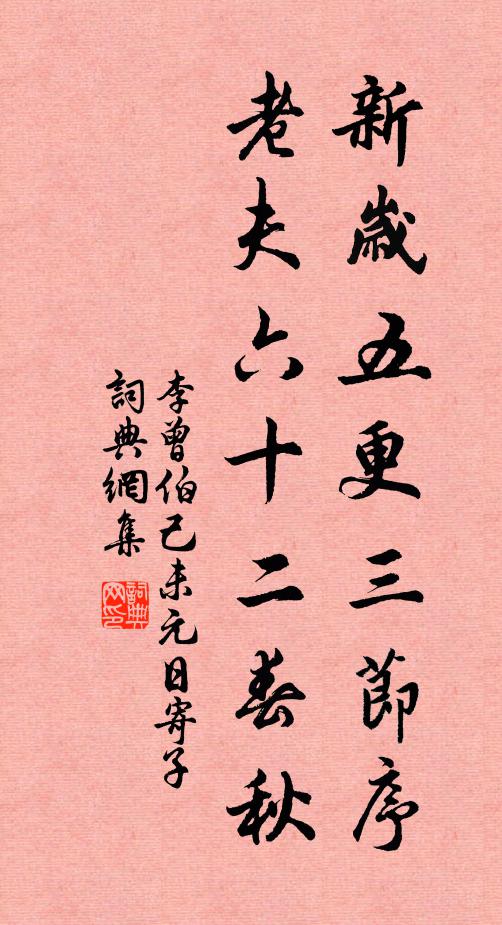 新歲五更三節序
老夫六十二春秋
李曾伯己未元日寄子
詞典網集
詞典网印